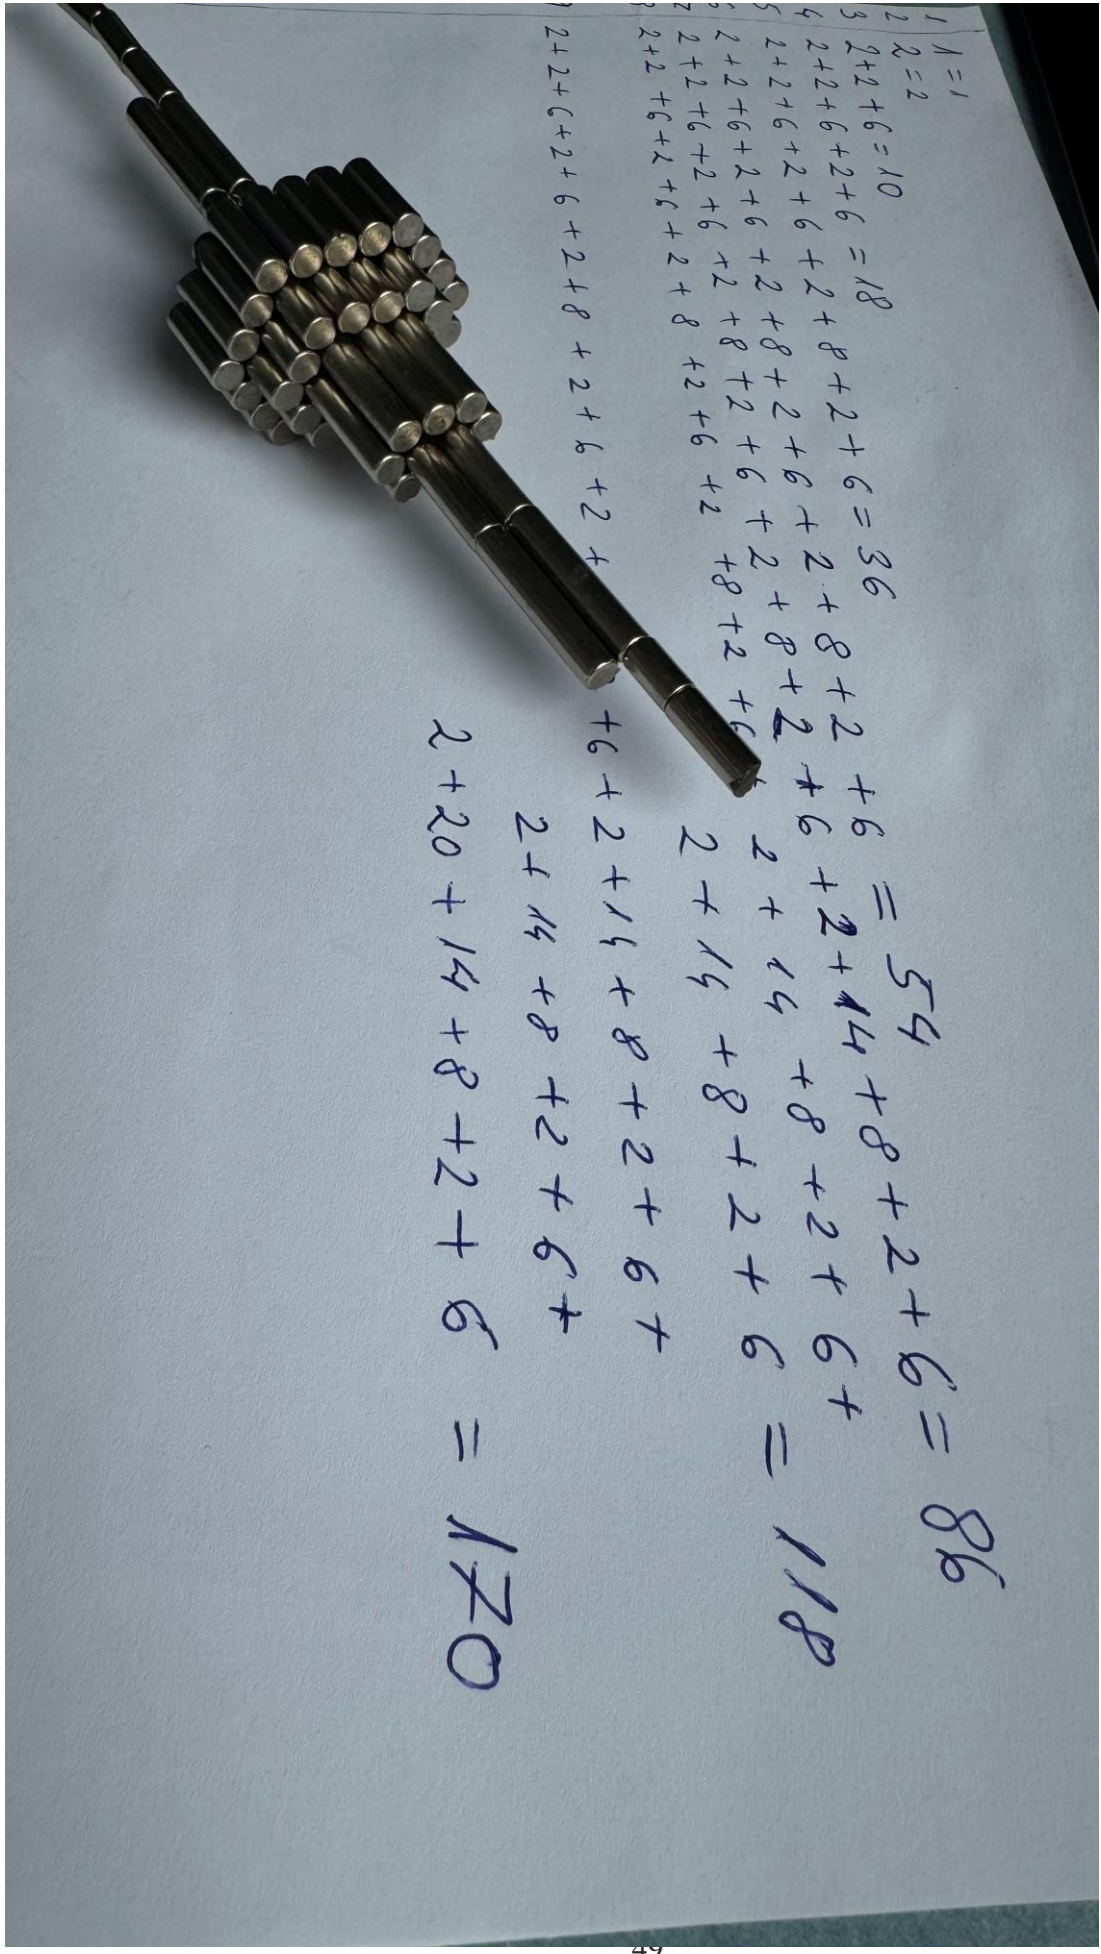 1 1=1
2 2=2
3 2+2+6=10
4 2+2+6+2+6=18
5 2+2+6+2+6+2+8+2+6=36
2+2+6+2+6+2+8+2+6+2+8+2+6=54
7 2+2+6+2+6+2+8+2+6+2+8+2+6+2+14+8+2+6=86
2+2+6+2+6+2+8+2+6+2+8+2+6+2+14+8+2+6+
2+14+8+2+6=118
2+2+6+2+6+2+8+2+6+2+ +6+2+14+8+2+6+
2+14+8+2+6+
2+20+14+8+2+6=170